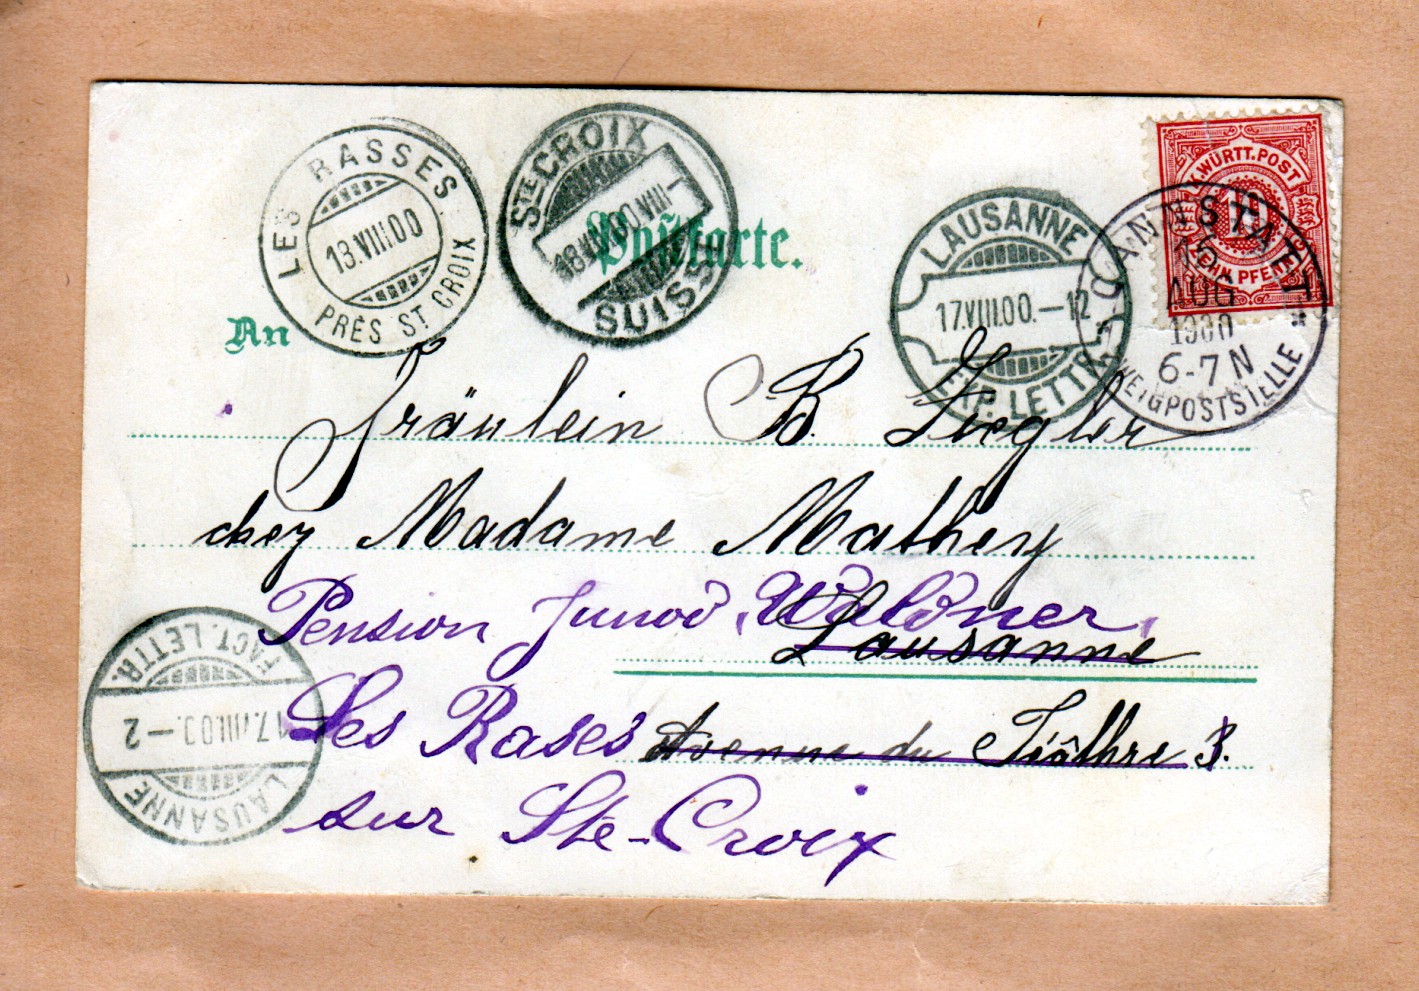 LES RASSES
13.VIII.00
PRÈS ST CROIX
STE CROIX
18.VIII.00.VIII-
SUISSE
Postkarte.
An
LAUSANNE
17.VIII.00.-12
EXP. LETTR.
K. WÜRTT. POST
10
ZEHN PFENNIG
CANNSTATT
15
AUG
1900
6-7 N
ZWEIGPOSTSTELLE
Fräulein B. Ziegler
chez Madame Mathey
Pension Junod, Waldner,
Lausanne
Les Rases Avenue du Téâthre 3.
sur Ste-Croix
LAUSANNE
17.VIII.00.-2
FACT. LETTR.